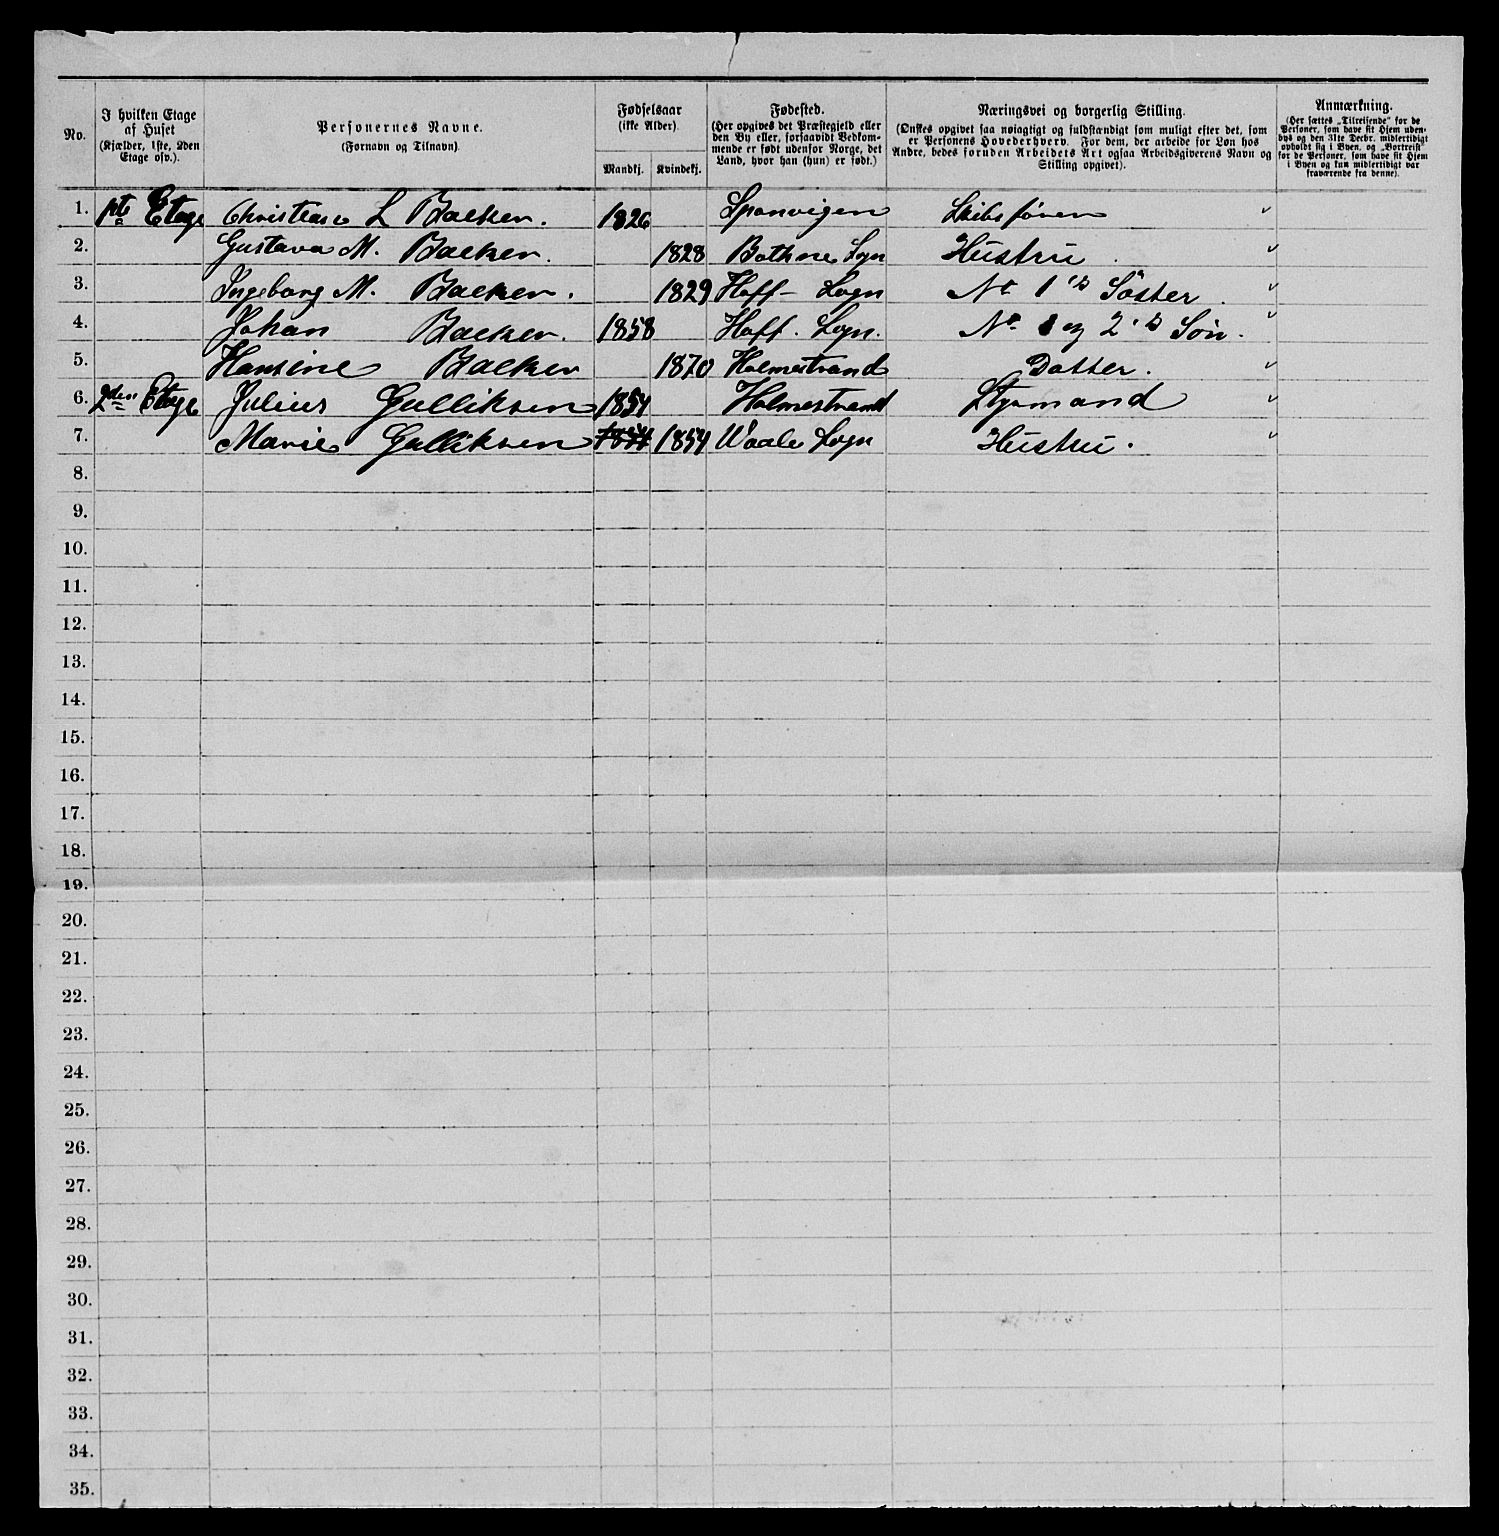 No. | I hvilken Etage af Huset (Kjælder, 1ste, 2den Etage osv.). | Personernes Navne. (Fornavn og Tilnavn). | Fødselsaar (ikke Alder) Mandkj. | Kvindekj. | Fødested. (Her opgives det Præstegjeld eller den By eller, forsaavidt Vedkommende er født udenfor Norge, det Land, hvor han (hun) er født.) | Næringsvei og borgerlig Stilling. (Ønskes opgivet saa nøiagtigt og fuldstændigt som muligt efter det, som er Personens Hovederhverv. For dem, der arbeide for Løn hos Andre, bedes foruden Arbeidets Art ogsaa Arbeidsgiverens Navn og Stilling opgivet). | Anmærkning. (Her sættes „Tilreisende" for de Personer, som have sit Hjem udenbys og den 31te Decbr. midlertidigt opholdt sig i Byen, og „Bortreist" for de Personer, som have sit Hjem i Byen og kun midlertidigt var fraværende fra denne).
1. 1ste Etage Christian L Backer. 1826 Spanvigen Skibsfører "
2. Gustava M. Backer. 1828 Bothne Sogn Hustru "
3. Ingeborg M. Backer. 1829 Hoff Sogn No 1's Söster. "
4. Johan Backer. 1858 Hoff. Sogn. No 1 og 2's Søn. "
5. Hansine Backer 1870 Holmestrand Datter. "
6. 2den Etage Julius Gulliksen 1854 Holmestrand Styrmand "
7. Marie Gulliksen 1854 1854 Vaale Sogn Hustru. "
8.
9.
10.
11.
12.
13.
14.
15.
16.
17.
18.
19.
20.
21.
22.
23.
24.
25.
26.
27.
28.
29.
30.
31.
32.
33.
34.
35.